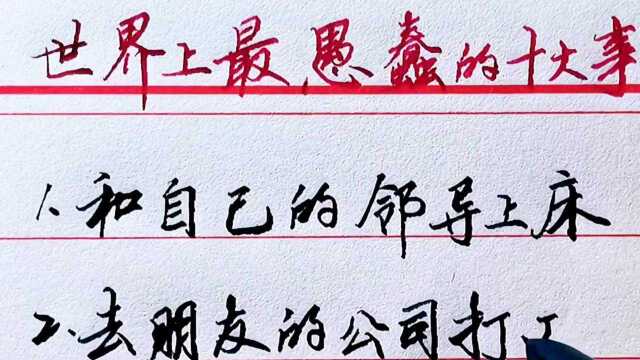 世界上最愚蠢的十大事
1.和自己的邻导上床
2.去朋友的公司打工